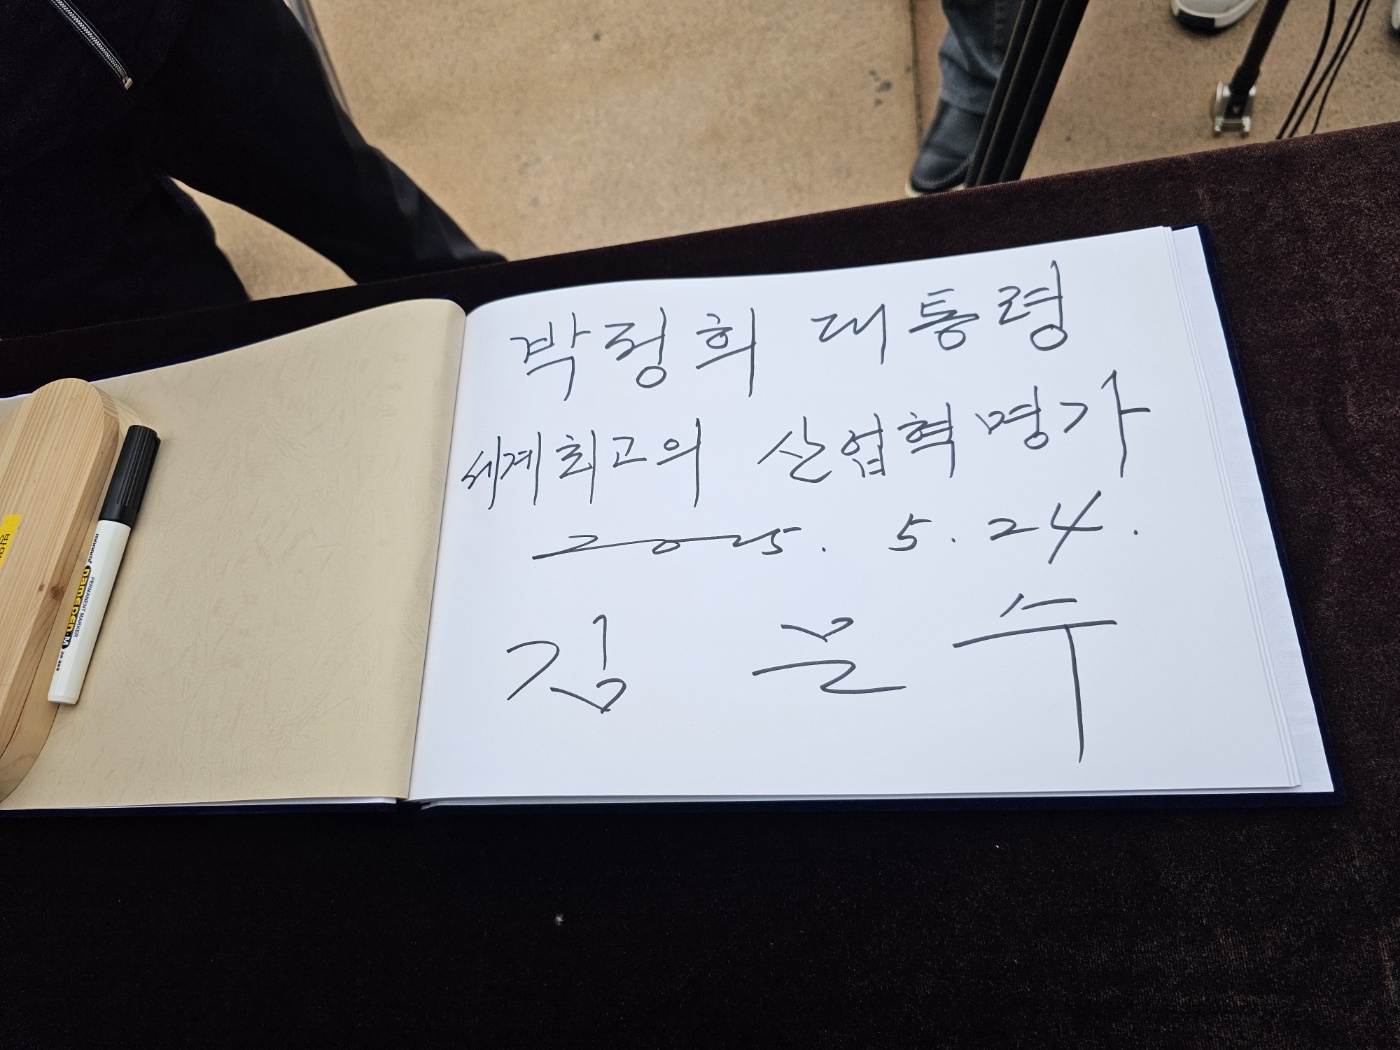 박정희 대통령
세계최고의 산업혁명가
2025. 5. 24.
김문수
PERMANENT MARKER
namepen M